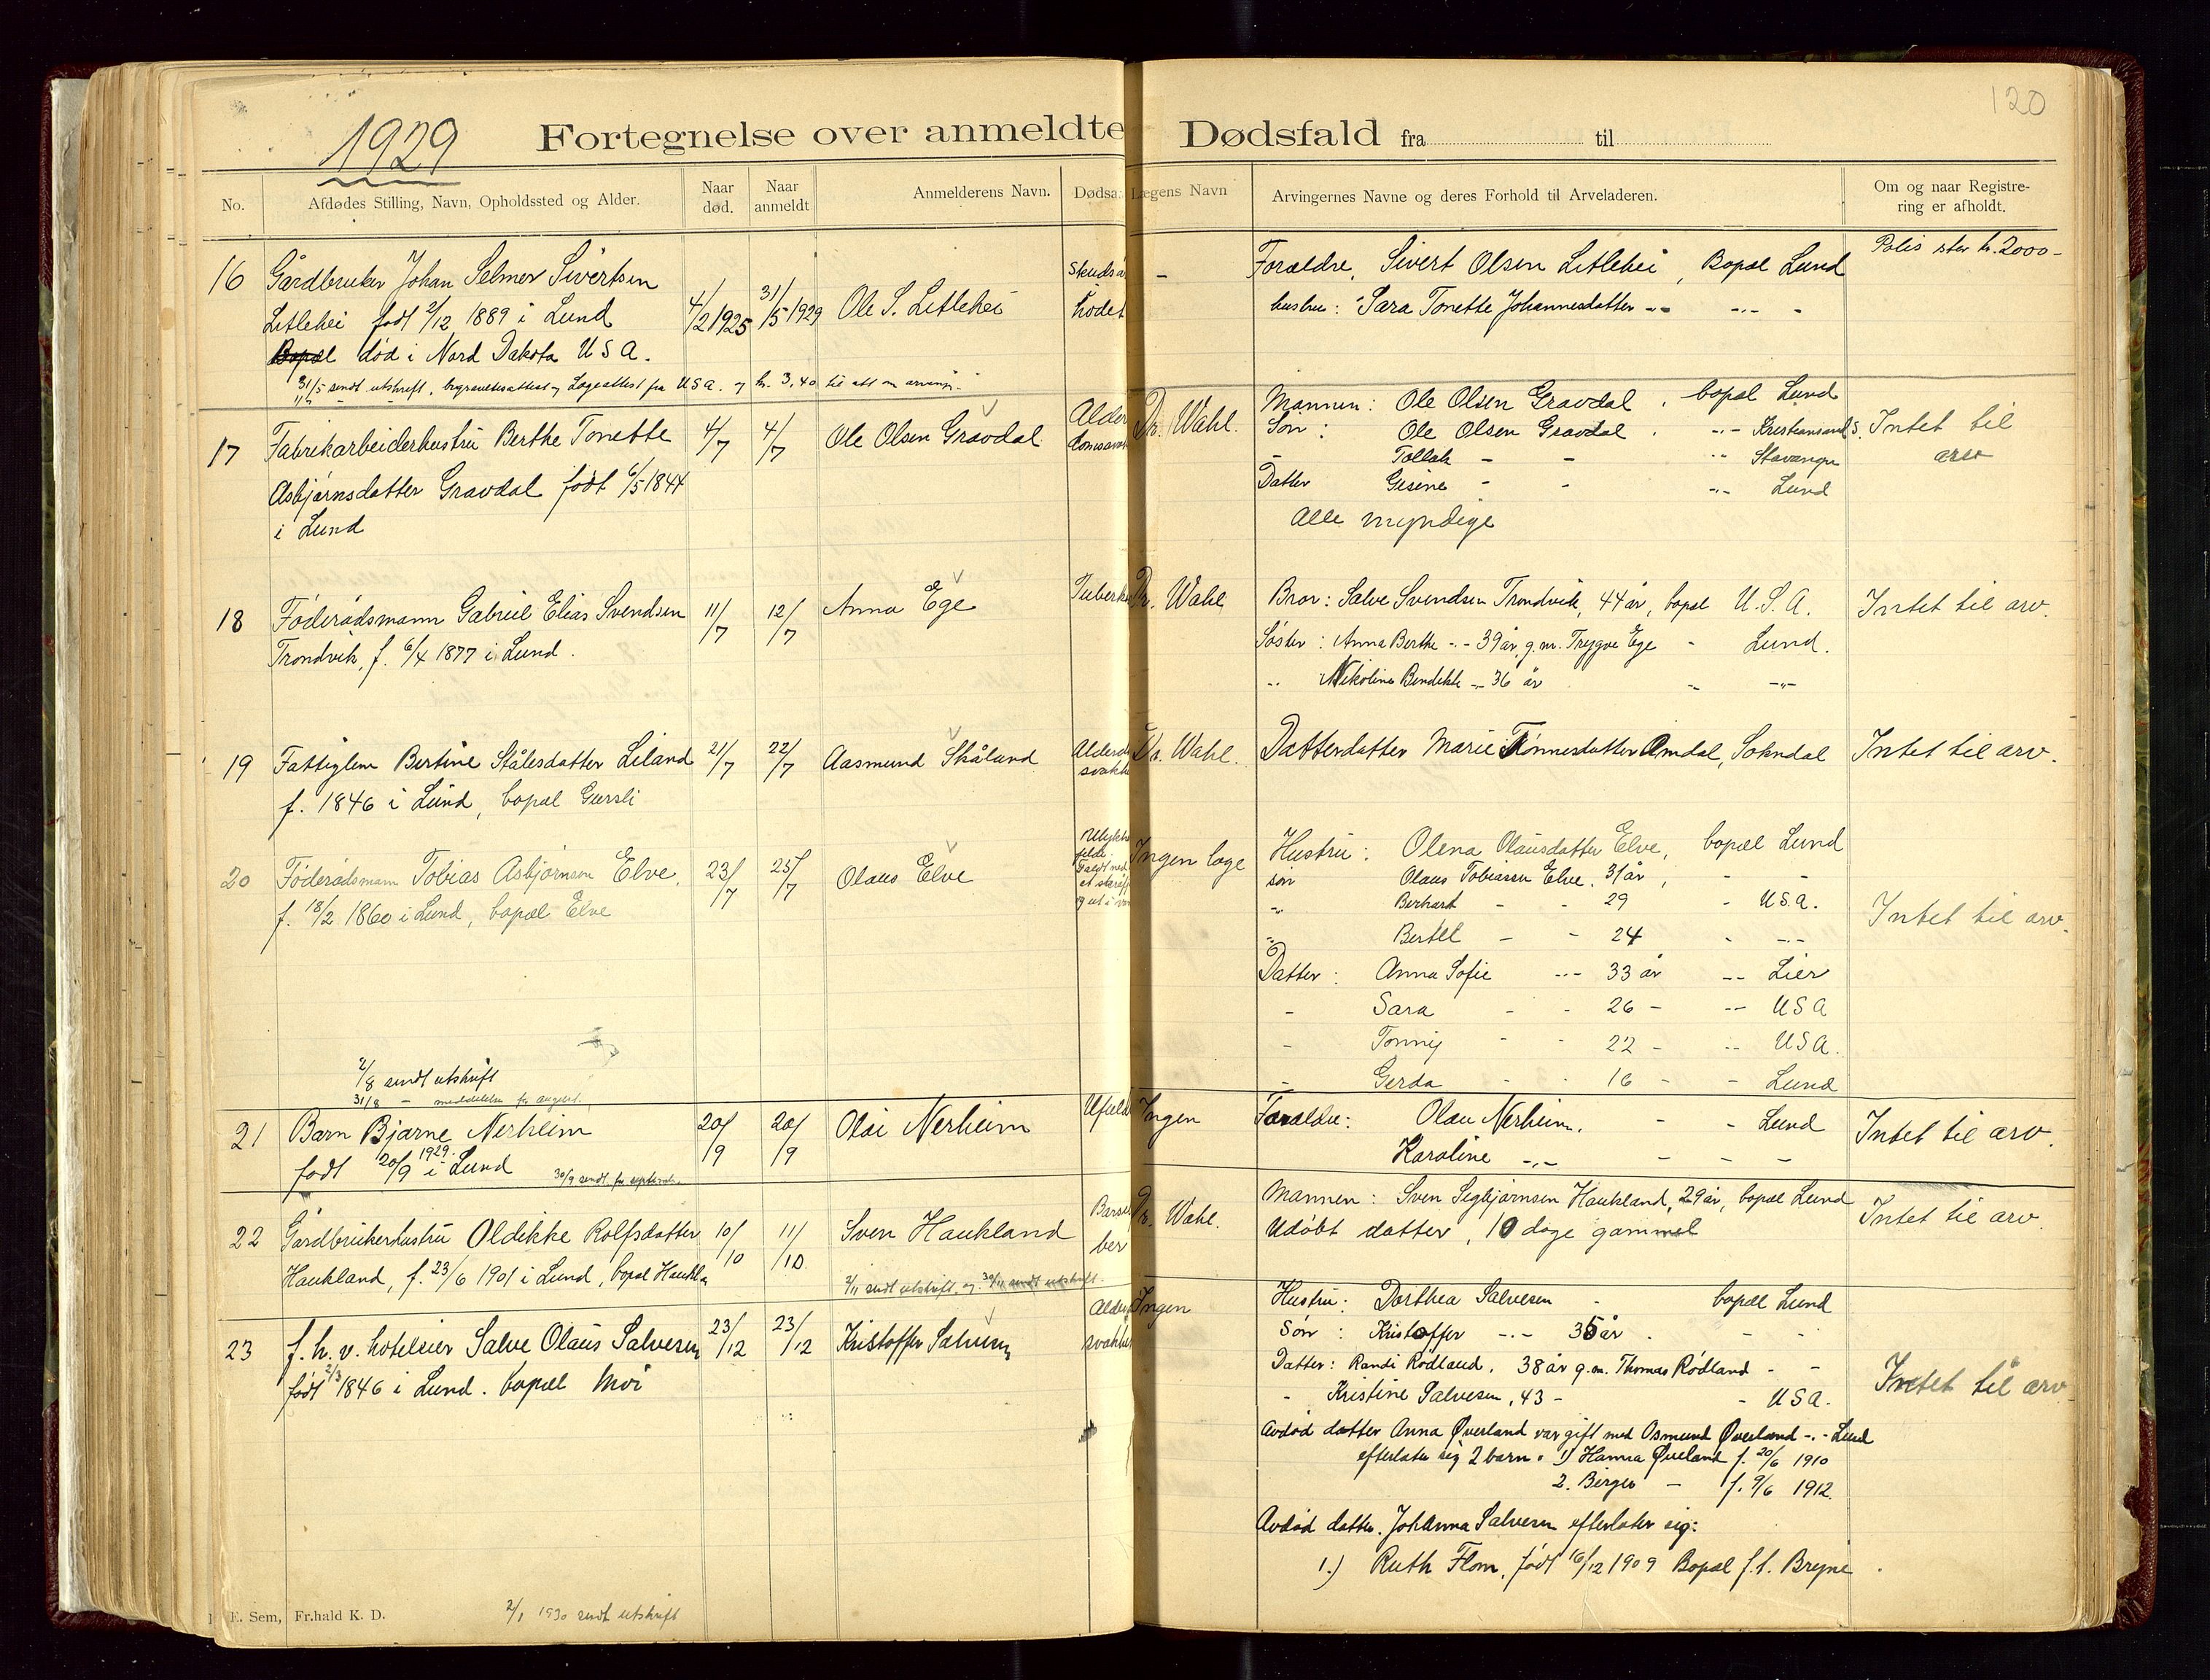 120
1929
Fortegnelse over anmeldte Dødsfald fra til
No.
Afdødes Stilling, Navn, Opholdssted og Alder.
Naar død.
Naar anmeldt
Anmelderens Navn.
Dødsa
Lægens Navn
Arvingernes Navne og deres Forhold til Arveladeren.
Om og naar Registre-
ring er afholdt.
16 Gårdbruker Johan Selmer Sivertsen
Litlehei født 2/12 1889 i Lund
Bopæl død i Nord Dakota U S A.
4/2 1925
31/5 1929
Ole S. Litlehei
Skudså
hodet
-
Forældre, Sivert Olsen Litlehei, Bopæl Lund
hustru: Sara Tonette Johannesdatter -"- -"- -
Polis stor kr. 2000-
31/5 sendt utskrift, begravelsesattest og Lægeattest fra U S A. og kr. 3,40 til att om arving.
17 Fabrikarbeiderhustru Berthe Tonette
Asbjørnsdatter Gravdal født 6/5 1844
i Lund
4/7
4/7
Ole Olsen Gravdal
Alder
domssvak
Dr. Wahl.
Mannen: Ole Olsen Gravdal, bopæl Lund
Søn: Ole Olsen Gravdal, -"- Kristiansand S.
- Tollak - - -"- Stavanger
Datter Gisine - - -"- Lund
Alle myndige
Intet til
arv
18 Føderådsmann Gabriel Elias Svendsen
Trondvik, f. 6/4 1877 i Lund.
11/7
12/7
Anna Ege
Tuberk
Dr. Wahl
Bror: Salve Svendsen Trondvik, 44 år, bopæl U.S.A.
Søster: Anna Berthe -"- 39 år, g.m. Trygve Ege - Lund.
-"- Nikoline Bendikte -"- 36 år -"- -"-
Intet til arv.
19 Fattiglem Bertine Stålesdatter Liland
f. 1846 i Lund, bopæl Gursli
21/7
22/7
Aasmund Skåland
Alderd
svakhe
Dr. Wahl.
Datterdatter Marie Tønnesdatter Amdal, Sokndal
Intet til arv.
20 Føderådsmann Tobias Asbjørnsen Elve,
f. 18/2 1860 i Lund, bopæl Elve
23/7
25/7
Olaus Elve
Ulykke
Ingen læge
Hustru: Olena Olausdatter Elve, bopæl Lund
søn Olaus Tobiassen Elve, 31 år, - -
-"- Berhart - - 29 - U.S.A.
-"- Bertel - - 24 - -"-
Datter: Anna Sofie -"- 33 år -"- Lier
- Sara - - 26 - -"- U S A
- Tonny - - 22 - -"- U S A.
- Gerda - - 16 - - Lund
Intet til arv.
2/8 sendt utskrift
31/8 - meddelelse for august.
21 Barn Bjarne Nerheim
født 20/9 1929 i Lund
30/9 sendt for september
20/9
20/9
Olai Nerheim
Ufuld
Ingen
Forældre: Olau Nerheim. - - Lund
Karoline -"- - - -
Intet til arv.
22 Gårdbrukerhustru Oldikke Rolfsdatter
Haukland, f. 23/6 1901 i Lund, bopæl Haukla
10/10
11/10
Sven Haukland
2/11 sendt utskrift, og 30/11 sendt utskrift.
Barse
ber
Dr. Wahl.
Mannen: Sven Segbjørnsen Haukland, 29 år, bopæl Lund
Udøbt datter, 10 dage gammel
Intet til arv.
23 f. h. v. hotelleier Salve Olaus Salvesen
født 2/3 1846 i Lund. bopæl Moi
23/12
23/12
Kristoffer Salvesen
Alder
svakhe
Ingen
Hustru: Dorthea Salvesen - bopæl Lund
Søn: Kristoffer -"- 35 år. - -
Datter: Randi Rødland, 38 år g.m. Thomas Rødland - -
- Kristine Salvesen, 43 - - U S A.
Avdød datter Anna Øverland var gift med Osmund Øverland -"- Lund
efterlater sig 2 barn: 1) Hanna Øverland f. 20/6 1910
2. Birger - f. 9/6 1912.
Avdød datter. Johanna Salvesen efterlater sig:
1.) Ruth Flom, født 16/12 1909 Bopæl f.t. Bryne.
Intet til arv
E. Sem, Fr.hald K. D.
2/1 1930 sendt utskrift